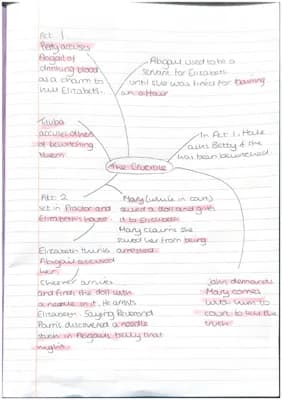 Act 1
Betty accuses
Abigail of
drinking blood
as a charm to
kill Elizabeth.
Abigail used to be a
servant for Elizabeth
until she was fired for having
an affair
Tituba
accuses others
of bewitching
them
In Act 1, Hale
asks Betty if she
has been bewitched
The Crucible
Act 2
set in Proctor and
Elizabeth's house
Mary (while in court)
sewed a doll and gives
it to Elizabeth
Mary claims she
saved her from being
arrested
Elizabeth thinks
Abigail accused
her
Cheever arrives
and finds the doll with
a needle in it. He arrests
Elizabeth. Saying Reverend
Parris discovered a needle
stuck in Abigail's belly that
night.
John demands
Mary comes
with him to
court to tell the
truth